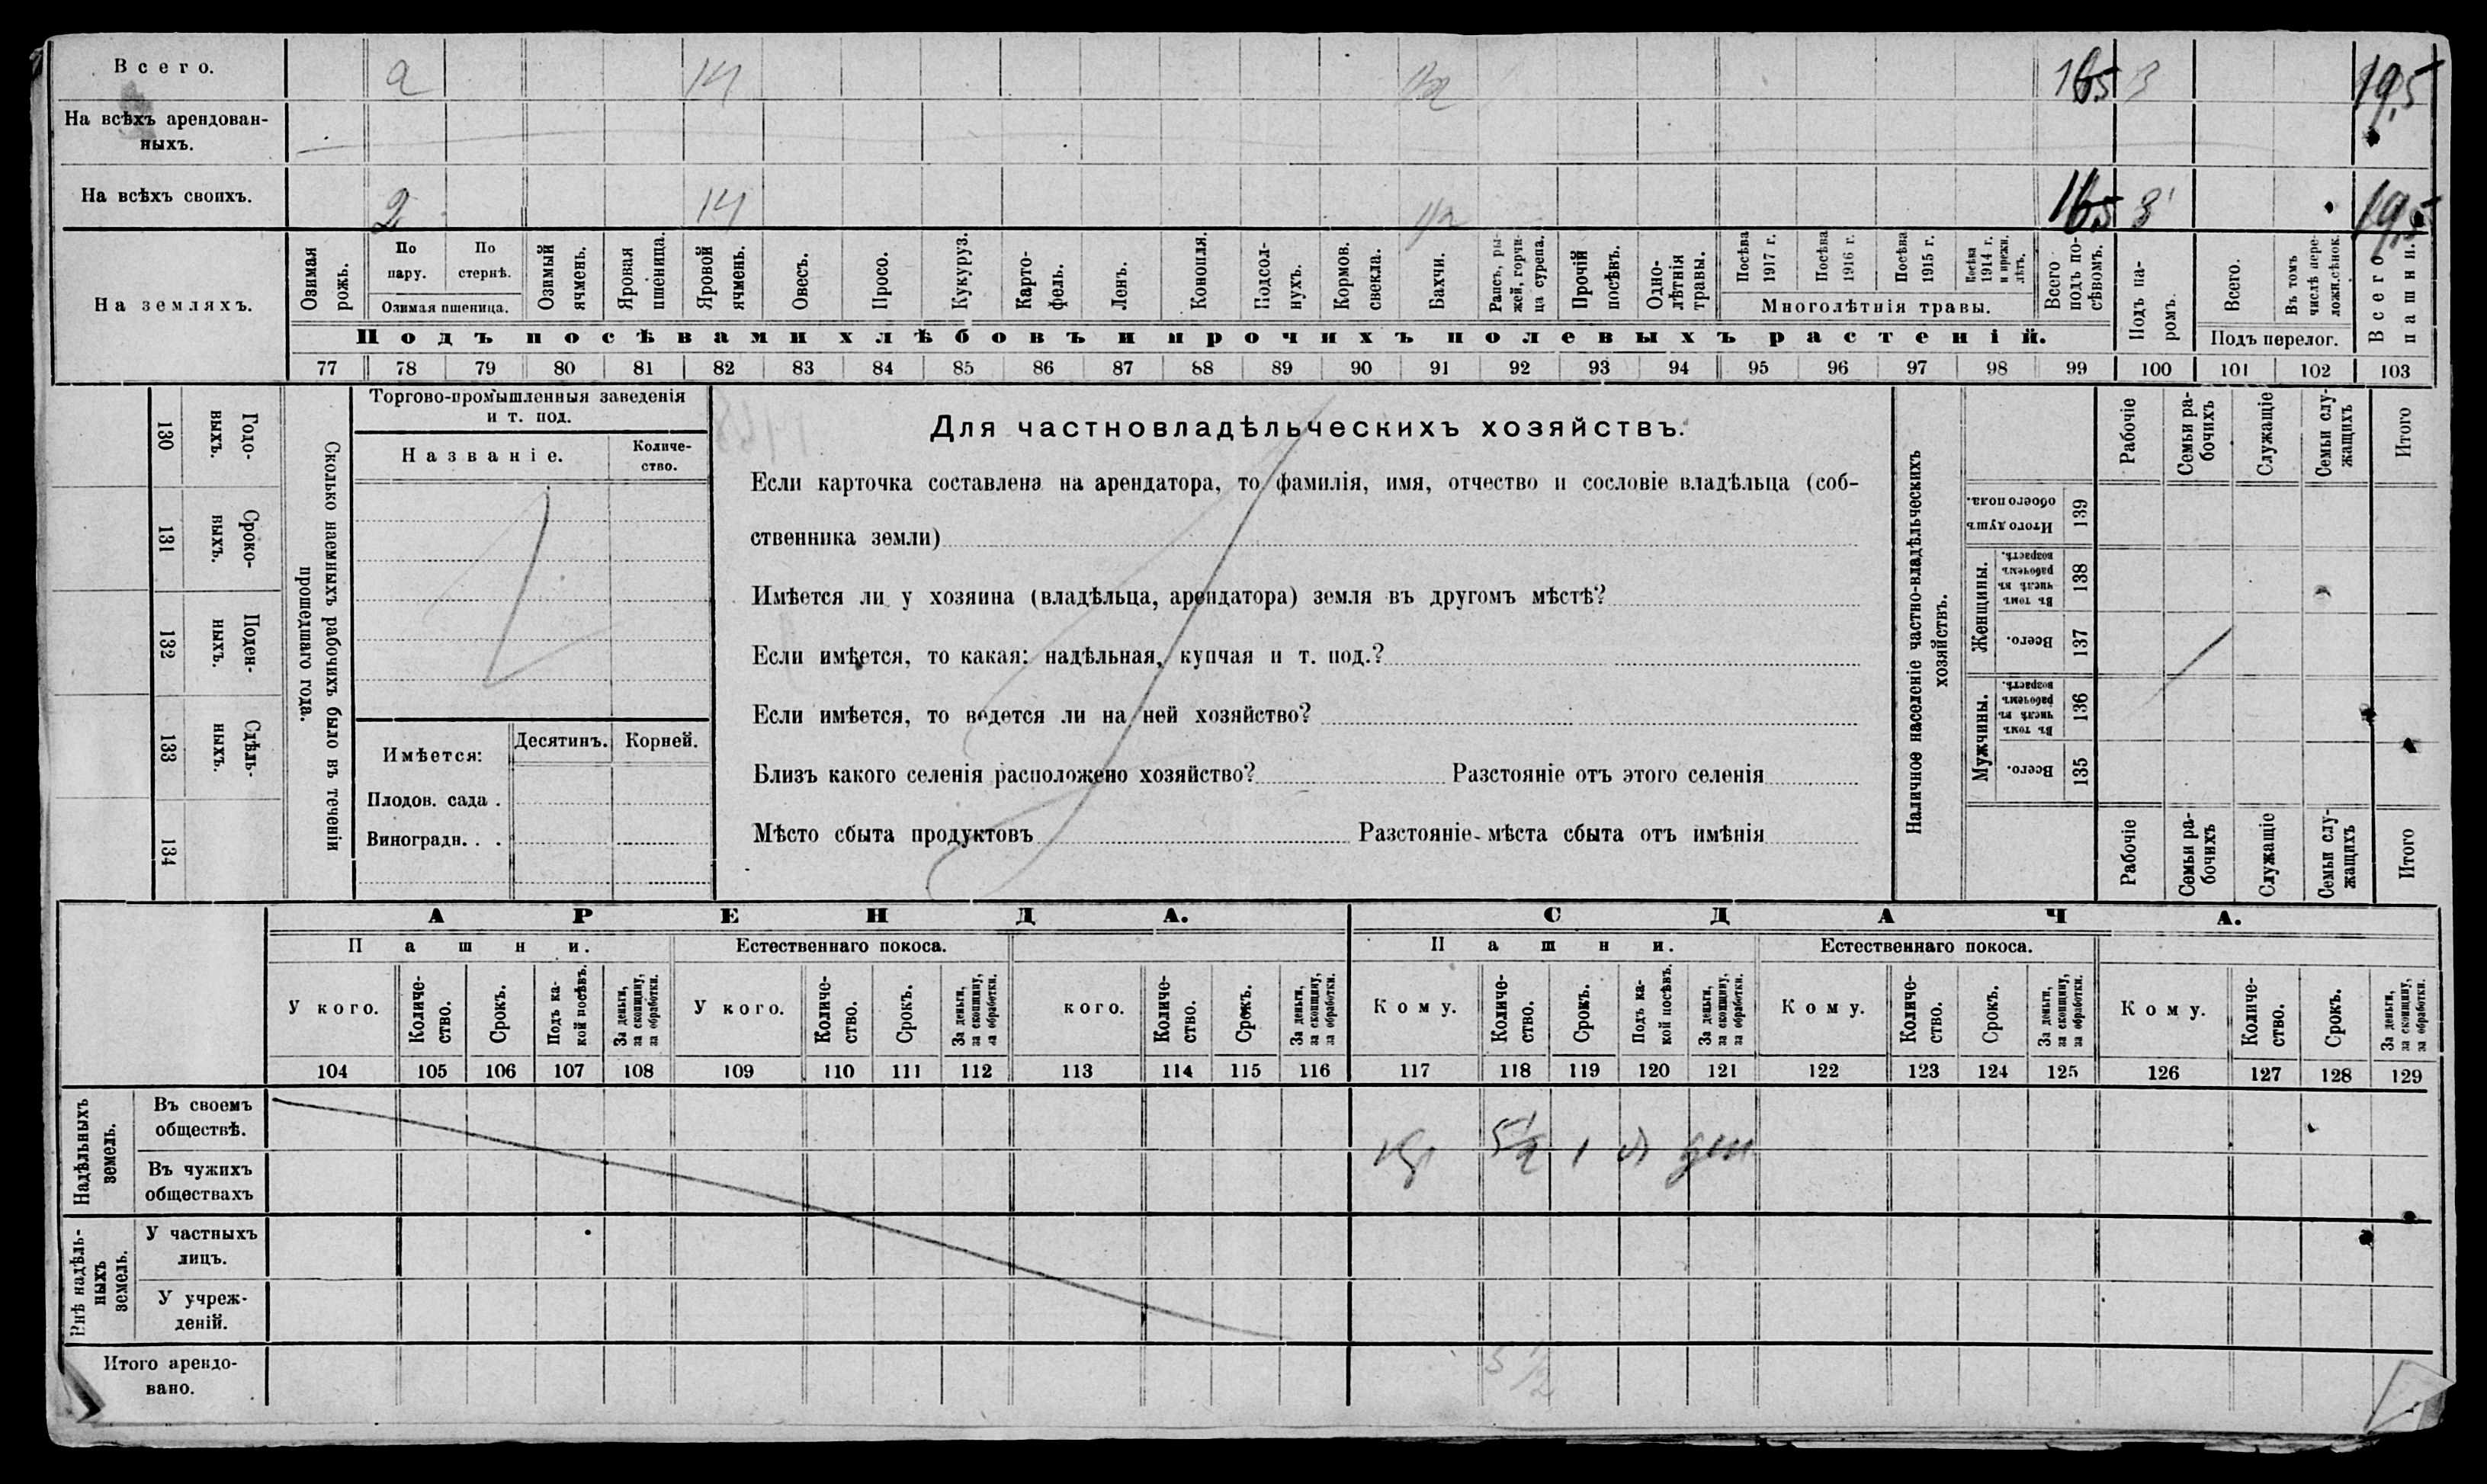 Всего. 2 14 1/2 16,5 3 19,5
На всѣхъ арендован-
ныхъ.
На всѣхъ своихъ. 2 14 1/2 16,5 3 19,5
На земляхъ.
Озимая рожь.
По пару.
По стернѣ.
Озимая пшеница.
Озимый ячмень.
Яровая пшеница.
Яровой ячмень.
Овесъ.
Просо.
Кукуруз.
Карто-
фель.
Ленъ.
Конопля.
Подсол-
нухъ.
Кормов. свекла.
Бахчи.
Рапсъ, ры-
жей, горчи-
ца сурепа.
Прочій посѣвъ.
Одно-
лѣтнія травы.
Посѣва 1917 г.
Посѣва 1916 г.
Посѣва 1915 г.
Посѣва 1914 г. и прежн. лѣтъ.
Многолѣтнія травы.
Всего подъ по-
сѣвомъ.
Подъ посѣвами хлѣбовъ и прочихъ полевыхъ растеній.
Подъ па-
ромъ.
Всего.
Въ томъ числѣ пере-
ложн. сѣнок.
Подъ перелог.
Всего пашни.
77 78 79 80 81 82 83 84 85 86 87 88 89 90 91 92 93 94 95 96 97 98 99 100 101 102 103
130 Годо-
выхъ.
131 Сроко-
выхъ.
132 Поден-
ныхъ.
133 Сдѣль-
ныхъ.
134
Сколько наемныхъ рабочихъ было въ теченіи
прошедшаго года.
Торгово-промышленныя заведенія
и т. под.
Названіе.
Количе-
ство.
Имѣется: Десятинъ. Корней.
Плодов. сада .
Виноградн. . .
Для частновладѣльческихъ хозяйствъ.
Если карточка составлена на арендатора, то фамилія, имя, отчество и сословіе владѣльца (соб-
ственника земли)
Имѣется ли у хозяина (владѣльца, арендатора) земля въ другомъ мѣстѣ?
Если имѣется, то какая: надѣльная, купчая и т. под.?
Если имѣется, то ведется ли на ней хозяйство?
Близъ какого селенія расположено хозяйство? Разстояніе отъ этого селенія
Мѣсто сбыта продуктовъ Разстояніе мѣста сбыта отъ имѣнія
Наличное населеніе частно-владѣльческихъ
хозяйствъ.
Рабочіе
Семьи ра-
бочихъ
Служащіе
Семьи слу-
жащихъ
Итого
Итого душъ обоего пола. 139
Женщины.
Въ томъ числѣ въ рабочемъ возрастѣ. 138
Всего. 137
Мужчины.
Въ томъ числѣ въ рабочемъ возрастѣ. 136
Всего. 135
Рабочіе
Семьи ра-
бочихъ
Служащіе
Семьи слу-
жащихъ
Итого
АРЕНДА. СДАЧА.
Пашни. Естественнаго покоса. Пашни. Естественнаго покоса.
У кого.
Количе-
ство.
Срокъ.
Подъ ка-
кой посѣвъ.
За деньги,
за скопщину,
за обработки.
У кого.
Количе-
ство.
Срокъ.
За деньги,
за скопщину,
за обработки.
кого.
Количе-
ство.
Срокъ.
За деньги,
за скопщину,
за обработки.
Кому.
Количе-
ство.
Срокъ.
Подъ ка-
кой посѣвъ.
За деньги,
за скопщину,
за обработки.
Кому.
Количе-
ство.
Срокъ.
За деньги,
за скопщину,
за обработки.
Кому.
Количе-
ство.
Срокъ.
За деньги,
за скопщину,
за обработки.
104 105 106 107 108 109 110 111 112 113 114 115 116 117 118 119 120 121 122 123 124 125 126 127 128 129
Надѣльныхъ
земель.
Въ своемъ
обществѣ.
5 1/2 1 ден
Въ чужихъ
обществахъ
Внѣ надѣль-
ныхъ
земель.
У частныхъ
лицъ.
У учреж-
деній.
Итого арендо-
вано.
5 1/2